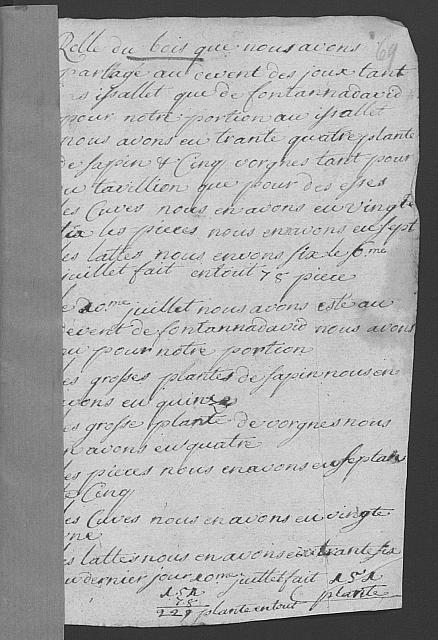 69
Rolle du bois que nous avons
partagé au devent des joux tant
es issallet que de fontannadavid
pour notre portion au issallet
nous avons eu trante quatre plante
de sapin & Cinq vorgnes tant pour
du tavillion que pour des esses
les Cuves nous en avons eu vingte
six les pieces nous en avons eu sept
les lattes nous en vons six le 6me
juillet fait entout 78 piece
le 20me juillet nous avons esté au
devent de fontannadavid nous avons
eu pour notre portion
les grosses plantes de sapin nous en
avons eu quinze
les grosse plante de vorgnes nous
en avons eu quatre
les pieces nous en avons eu septante
Cinq
les Cuves nous en avons eu vingte
une
les lattes nous en avons eu trante six
du dernier jour 20me juillet fait 151
151 plante
78
229 plante entout